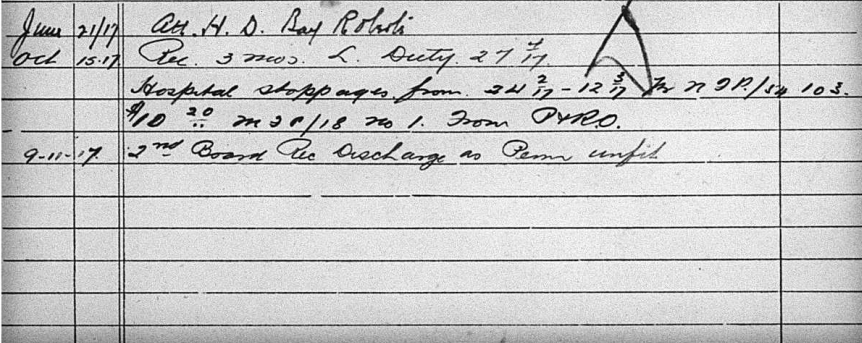 June 21/17 Att. H. D. Bay Roberts
Oct 15.17. Rec. 3 mos. L. Duty. 27 17.
Hospital stoppages from 24 2/17 - 12 3/17 103.
$10 20 no 1. From P&RO.
9-11-17. 2nd Board Rec Discharge as Perm unfit